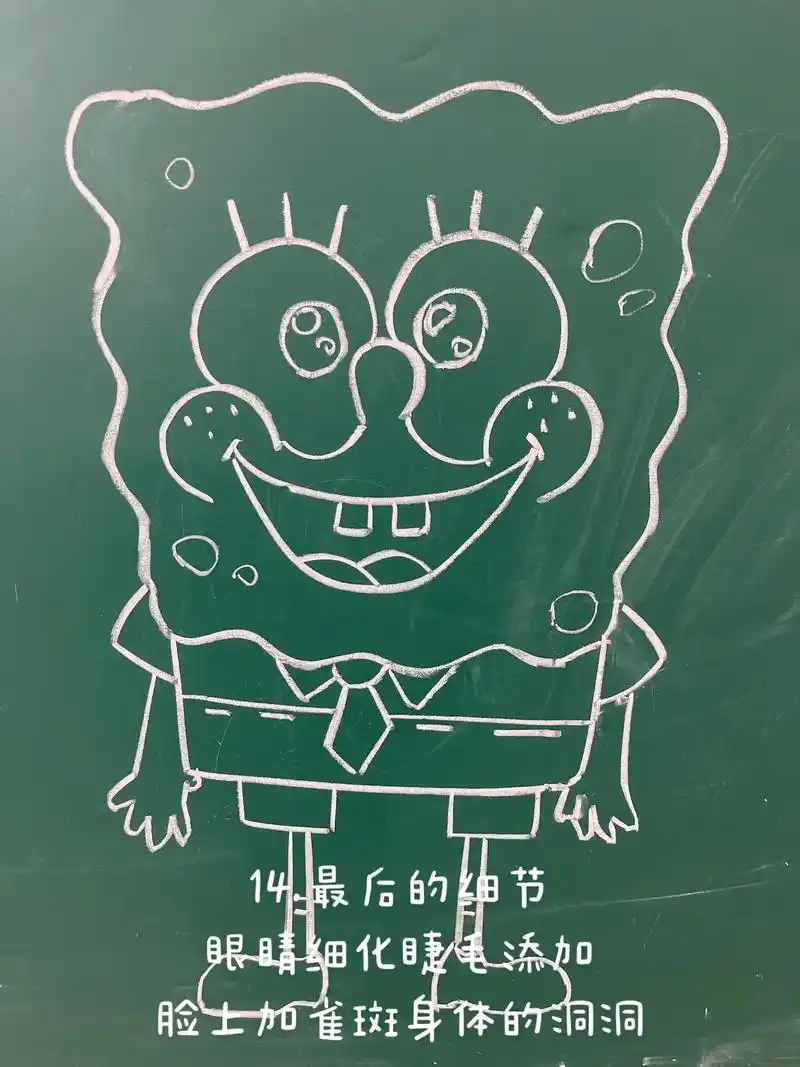 14.最后的细节
眼睛细化睫毛添加
脸上加雀斑身体的洞洞